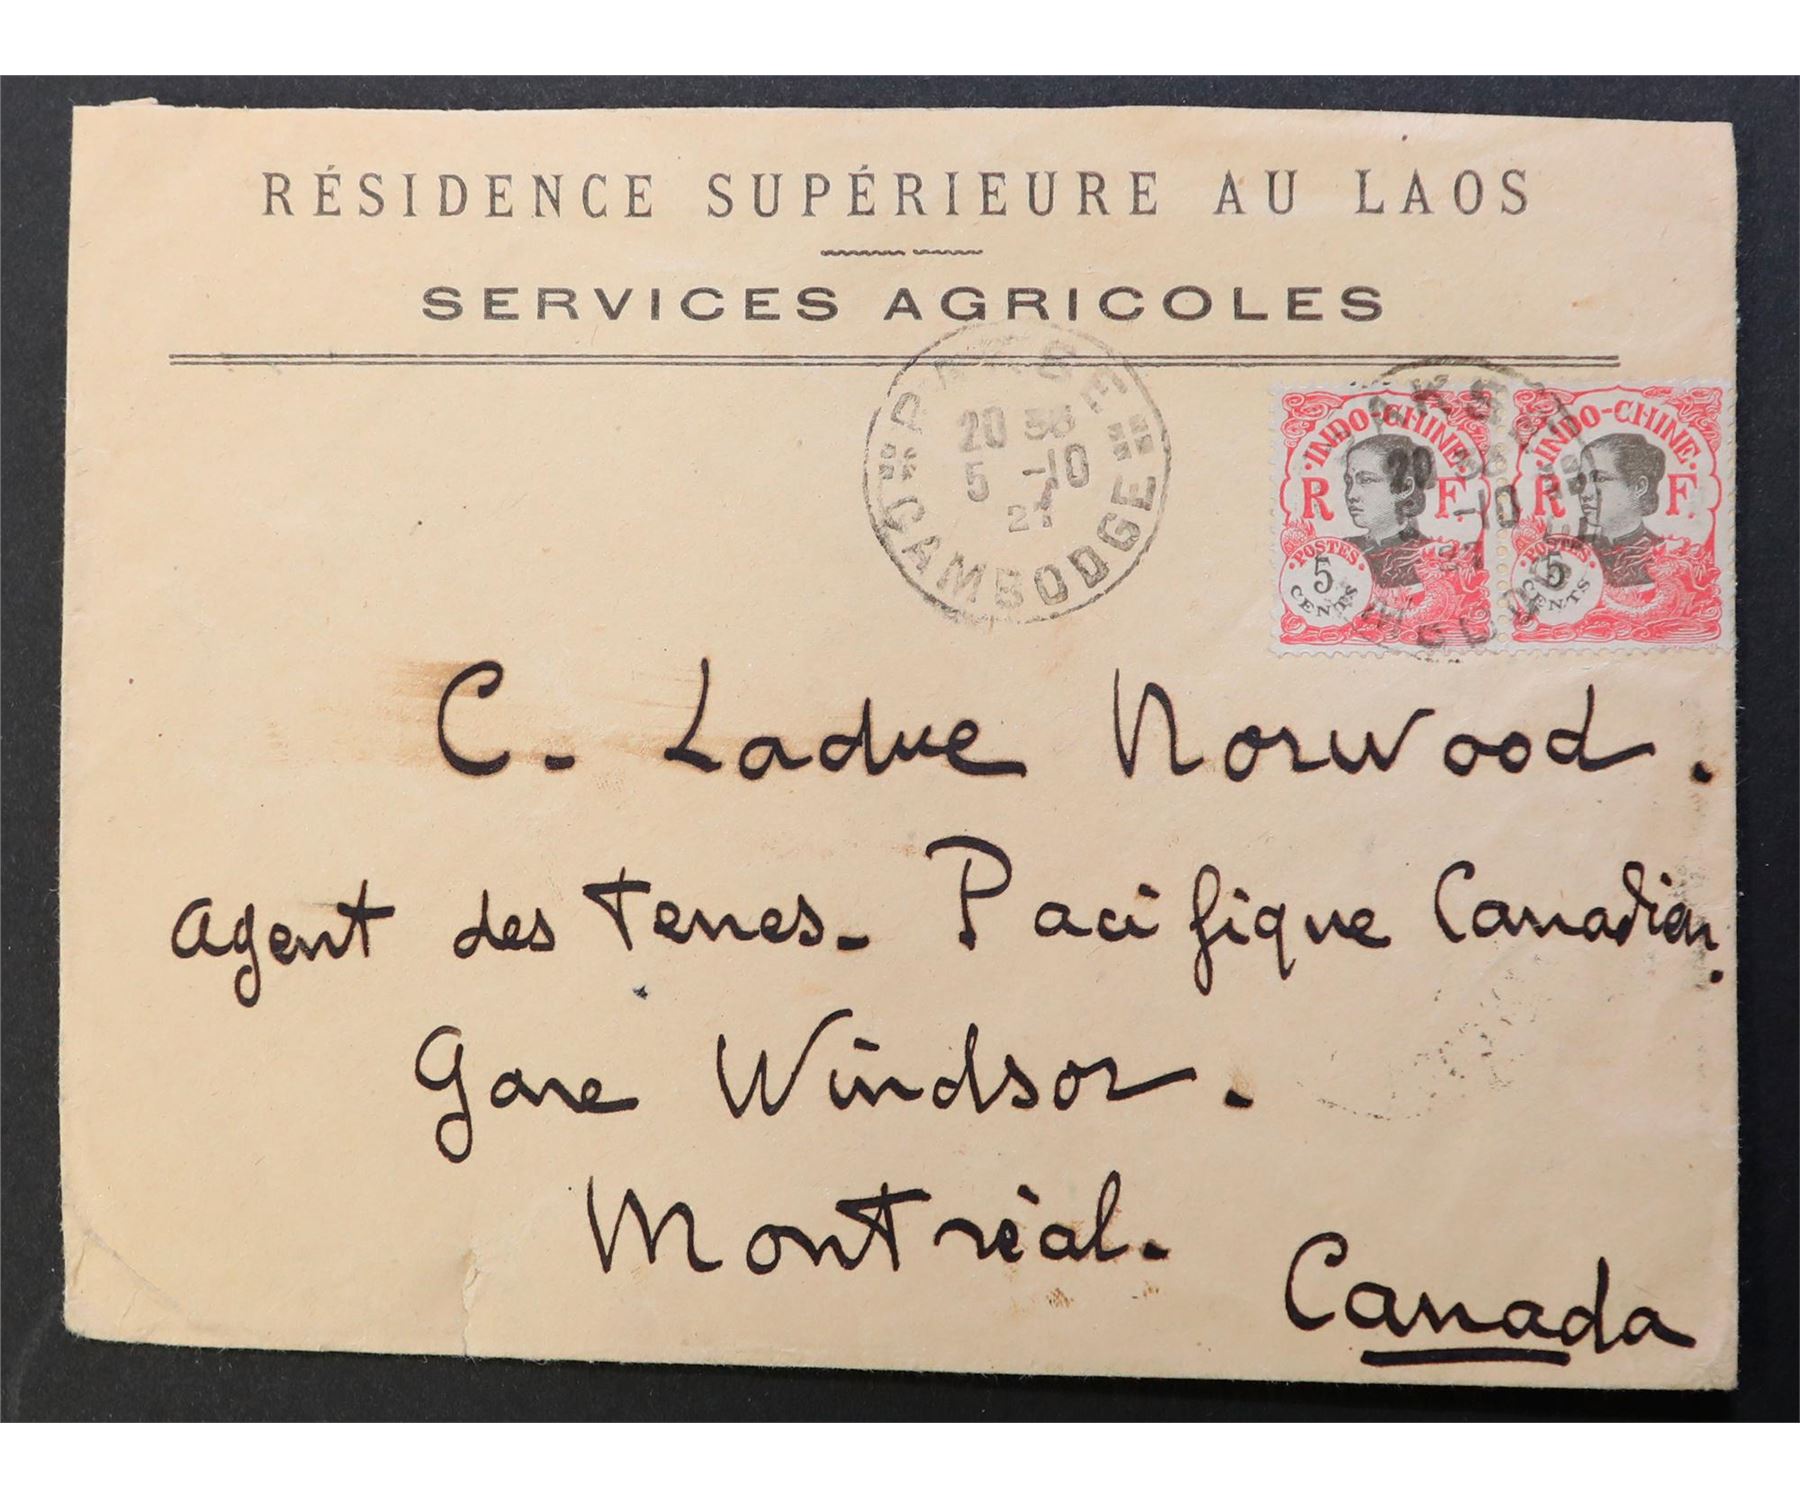 RÉSIDENCE SUPÉRIEURE AU LAOS
SERVICES AGRICOLES
PAKSE
20 30
5 -10
CAMBODGE
INDO-CHINE
R F.
POSTES
5
CENTS
INDO-CHINE
R F.
POSTES
5
CENTS
C. Ladue Norwood.
Agent des terres. Pacifique Canadien.
Gare Windsor.
Montréal.
Canada